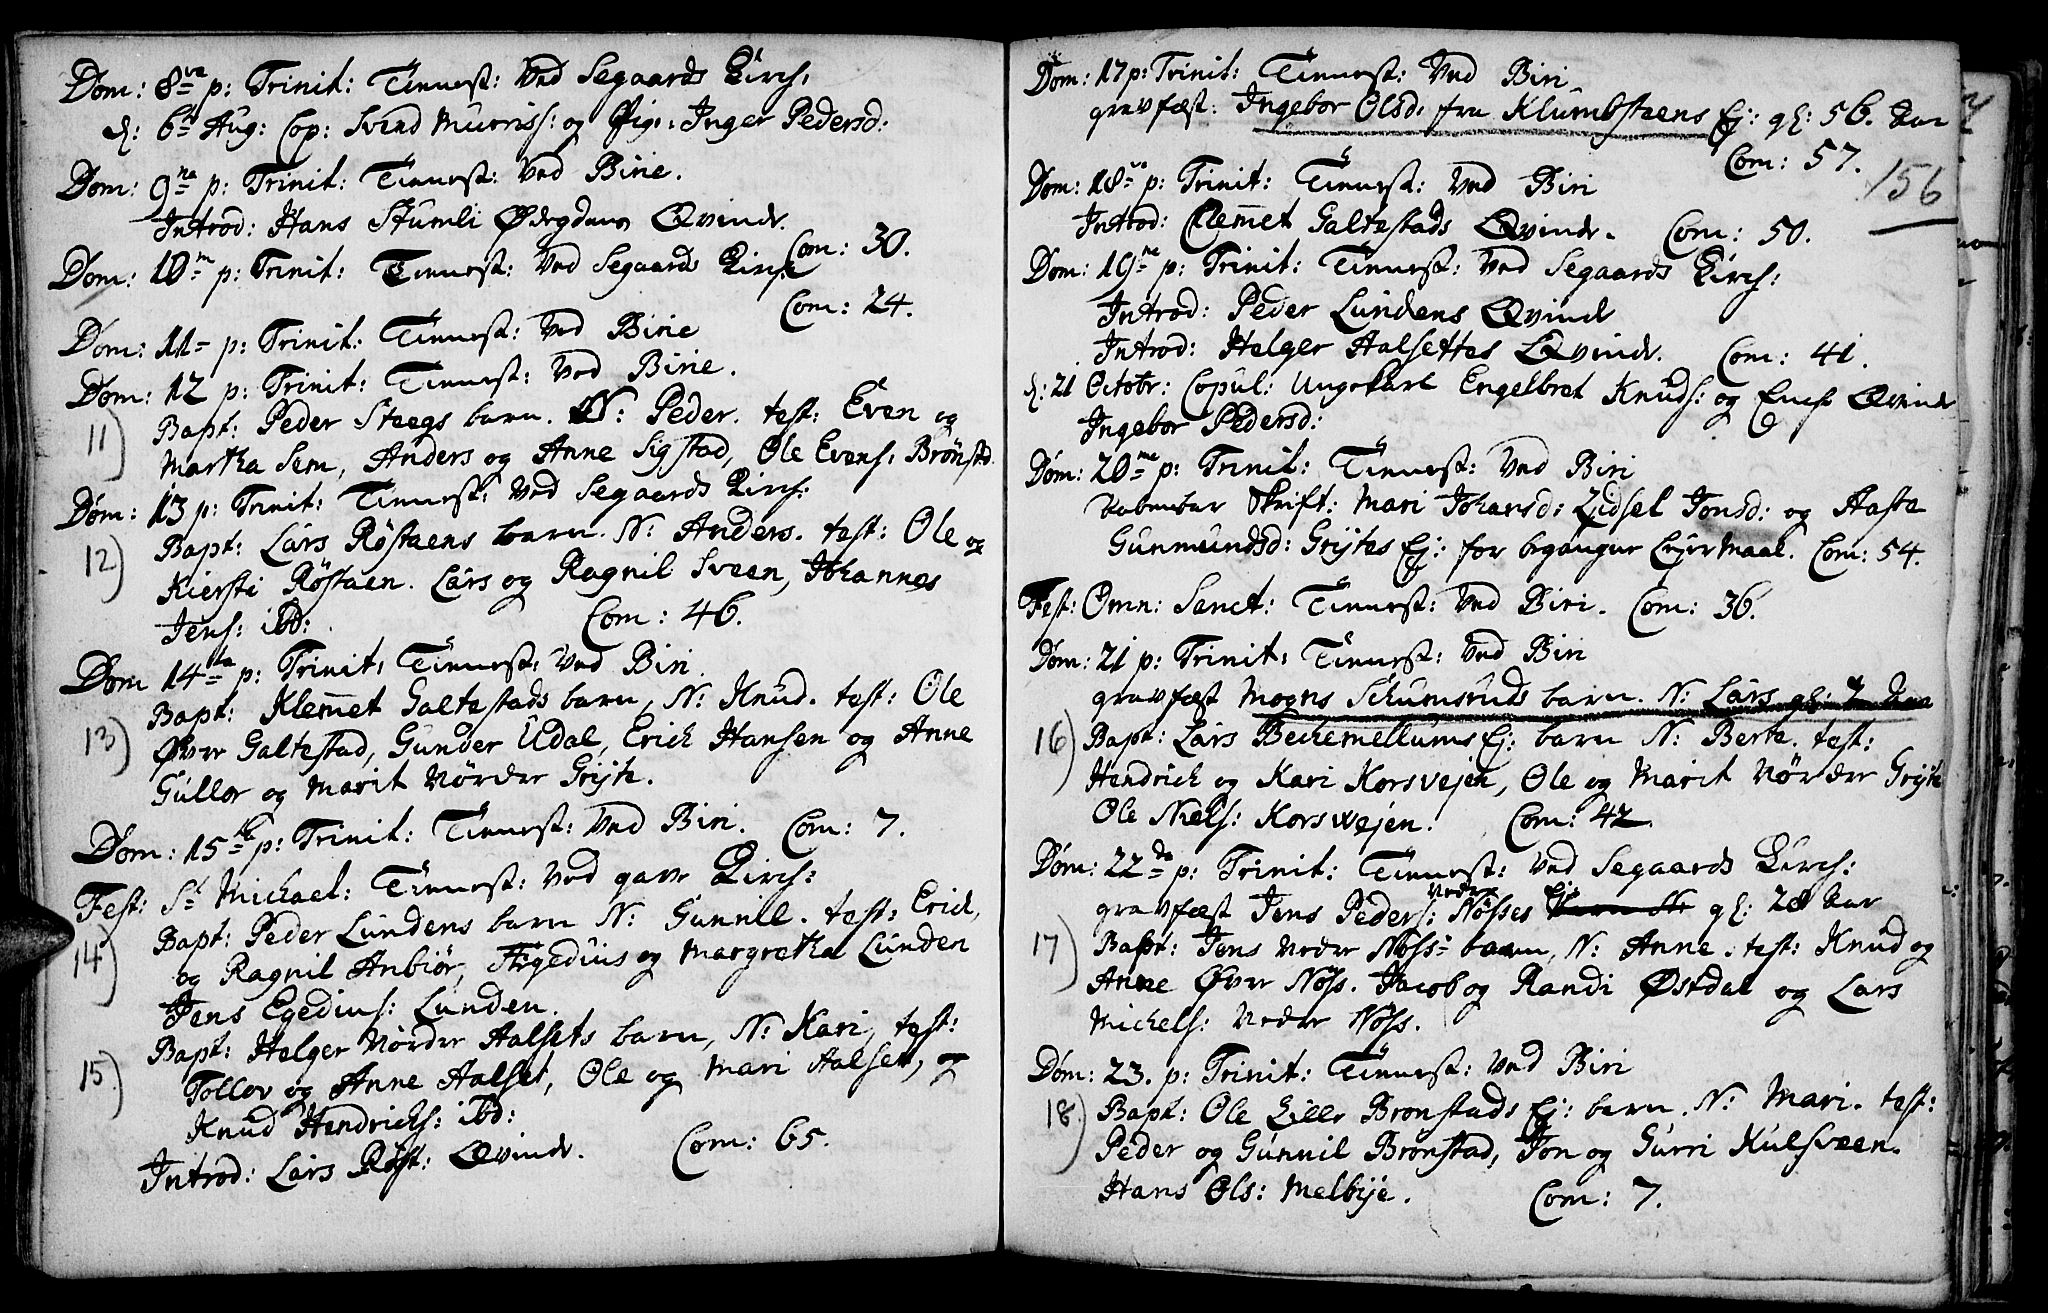 Dom: 8va p: Trinit: Tienest: Ved Segaards Kirch:
d: 6t Aug: Cop: Svend Murriss: og Pig: Inger Pedersd:
Dom: 9na p: Trinit: Tienest: Ved Birie.
Introd: Hans Stumli Ødegdens Qvinde.
Com: 30.
Dom: 10m p: Trinit: Tienest: Ved Segaards Kirch
Com: 24.
Dom: 11 p: Trinit: Tienest: Ved Birie
Dom: 12 p: Trinit: Tienest: Ved Birie.
11) Bapt: Peder Steegs barn. N: Peder. test: Even og
Martha Sem, Anders og Anne Sigstad, Ole Evens: Brønstd.
Dom: 13 p: Trinit: Tienest: Ved Segaards Kirch:
12) Bapt: Lars Røstaens barn. N: Anders. test: Ole og
Kiersti Røstaen. Lars og Ragnil Sveen, Johannes
Jens: ibd: Com: 46.
Dom 14ta p: Trinit: Tienest: Ved Biri
13) Bapt: Klemet Galtestads barn, N: Knud. test: Ole
Øvre Galtestad, Gunder Udal, Erich Hansen og Anne
Gullor og Marit Nørdre Grijte.
Dom: 15ta p: Trinit: Tienest: Ved Biri. Com: 7.
Fest: St Michael: Tienest: Ved gave Kirch:
14) Bapt: Peder Lundens barn N: Gunnill. test: Erich,
og Ragnil Anbiør, Ægedius og Margretha Lunden
Jens Egedius: Lunden.
15) Bapt: Helger Nørdre Aalsets barn, N: Kari, test:
Tollov og Anne Aalset, Ole og Mari Aalset, og
Knud Hendrichs: ibd:
Introd: Lars Røst: Qvinde. Com: 65.
Dom: 17 p: Trinit: Tienest: Ved Biri
gravfæst: Ingebor Olsd: fra Klumbsteens Ej: gl: 56. Aar
Com: 57.
156
Dom: 18va p: Trinit: Tienest: Ved Biri
Introd: Clemet Galtestads Qvinde. Com: 50.
Dom: 19ne p: Trinit: Tienest: Ved Segaards Kirch:
Introd: Peder Lundens Qvinde
Introd: Helger Aalsettes Qvinde. Com: 41.
d: 21 Octobr: Copul: Ungekarl Engelbret Knuds: og Qvinde
Ingebor Pedersd:
Dom: 20me p: Trinit: Tienest: Ved Biri
Aabenbar Skrift: Mari Johansd: Zidsel Jonsd: og Aasta
Gunmundsd: Grijtes Ej: for begangne Lejermaal. Com: 54.
Fest: Omn: Sanct: Tienest: Ved Biri. Com: 36.
Dom: 21 p: Trinit: Tienest: Ved Biri
gravfæst Mogns Skumsruds barn. N: Lars gl:
16) Bapt: Lars Bechemellums Ej: barn N: Berte. test:
Hendrich og Kari Korsvejen, Ole og Marit Nørdre Grijte
Ole Niels: Korswejen. Com: 42.
Dom: 22da p: Trinit: Tienest: Ved Segaards Kirch:
gravfæst Jens Peders: Nedre Nøsses Ej: gl: 28 Aar
17) Bapt: Jens Nedre Nøss: barn, N: Anne. test: Knud og
Anne Øvre Nøss. Jacob og Randi Østdal og Lars
Michels: Nedre Nøss.
Dom: 23. p: Trinit: Tienest: Ved Biri
18.) Bapt: Ole Lille Bronstads Ej: barn. N: Mari. test:
Peder og Gunnil Bronstad, Jon og Gurri Kulsveen.
Hans Ols: Melbije. Com: 7.